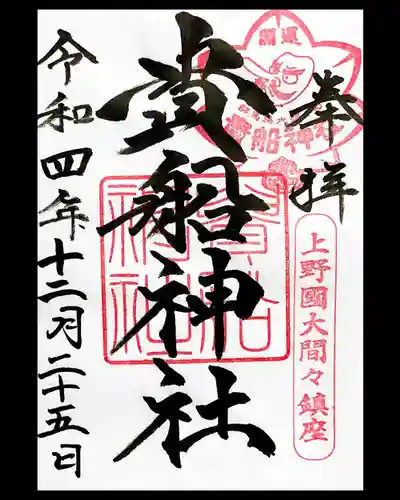 奉拝
開運
貴船神社
上野國大間々鎮座
貴船神社
貴船神社
令和四年十二月二十五日